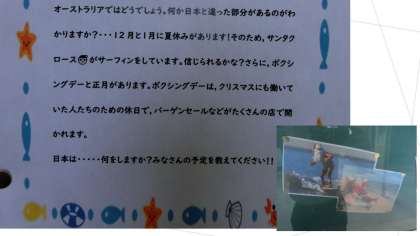 オーストラリアではどうでしょう。何か日本と違った部分があるのがわ
かりますか？・・・12月と1月に夏休みがあります！そのため、サンタク
ロース🎅がサーフィンをしています。信じられるかな？さらに、ボクシ
ングデーと正月があります。ボクシングデーは、クリスマスにも働いて
いた人たちのための休日で、バーゲンセールなどがたくさんの店で開
かれます。
日本は・・・・・何をしますか？みなさんの予定を教えてください！！